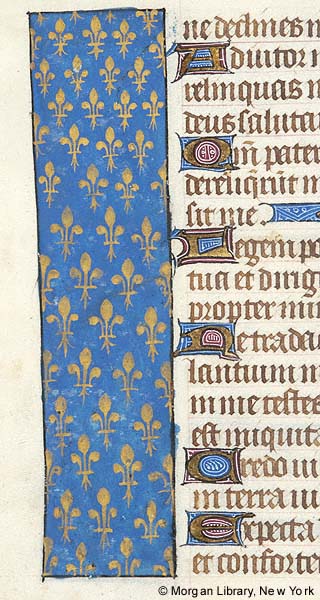 ne declines m
Adiutor m
relinquas m
deus saluta
Qm̄ pater
dereliq̄rūt m
sit me
Legem po
tua et dirig
propter ini
Ne traderi
lantium m
in me testes
est iniquita
Credo ui
in terra ui
Expecta
et conforte
© Morgan Library, New York